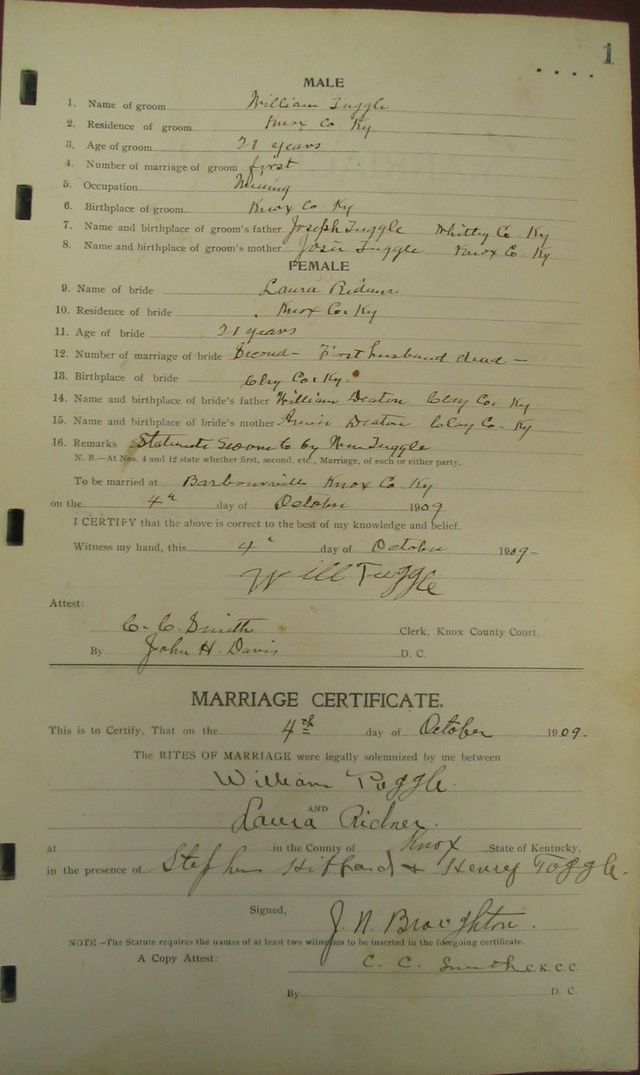 1
MALE
1. Name of groom William Tuggle
2. Residence of groom Knox Co Ky
3. Age of groom 21 years
4. Number of marriage of groom first
5. Occupation Mining
6. Birthplace of groom Knox Co Ky
7. Name and birthplace of groom's father Joseph Tuggle Whitley Co Ky
8. Name and birthplace of groom's mother Josie Tuggle Knox Co Ky
FEMALE
9. Name of bride Laura Ridner
10. Residence of bride Knox Co. Ky
11. Age of bride 21 years
12. Number of marriage of bride Second - First husband dead -
13. Birthplace of bride Clay Co. Ky.
14. Name and birthplace of bride's father William Deaton Clay Co. Ky
15. Name and birthplace of bride's mother Deaton Clay Co. Ky
16. Remarks Statements Sworn to by Wm Tuggle
N. B.—At Nos. 4 and 12 state whether first, second, etc., Marriage, of each or either party.
To be married at Barbourville Knox Co Ky
on the 4th day of October 1909
I CERTIFY that the above is correct to the best of my knowledge and belief.
Witness my hand, this 4" day of October 1909-
Will Tuggle
Attest:
C. C. Smith Clerk, Knox County Court.
By John H. Davis D. C.
MARRIAGE CERTIFICATE.
This is to Certify, That on the 4th day of October 1909.
The RITES OF MARRIAGE were legally solemnized by me between
William Toggle.
AND
Laura Ridner.
at in the County of Knox State of Kentucky,
in the presence of Stephen Hibbard & Henry Toggle.
Signed, J. N. Broughton.
NOTE -The Statute requires the names of at least two witnesses to be inserted in the foregoing certificate.
A Copy Attest: C. C. Smith C. K. C. C.
By D. C.